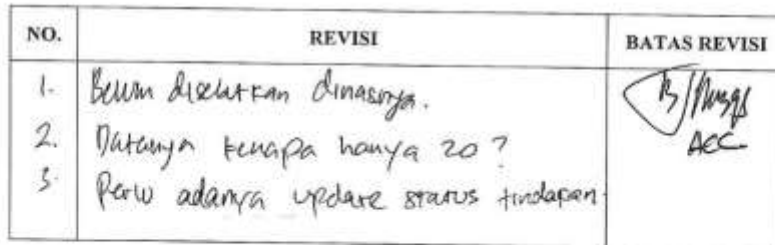 NO. REVISI BATAS REVISI
1. Belum disebutkan dinasnya.
2. Datanya kenapa hanya 20?
3. Perlu adanya update status tindakan.
ACC